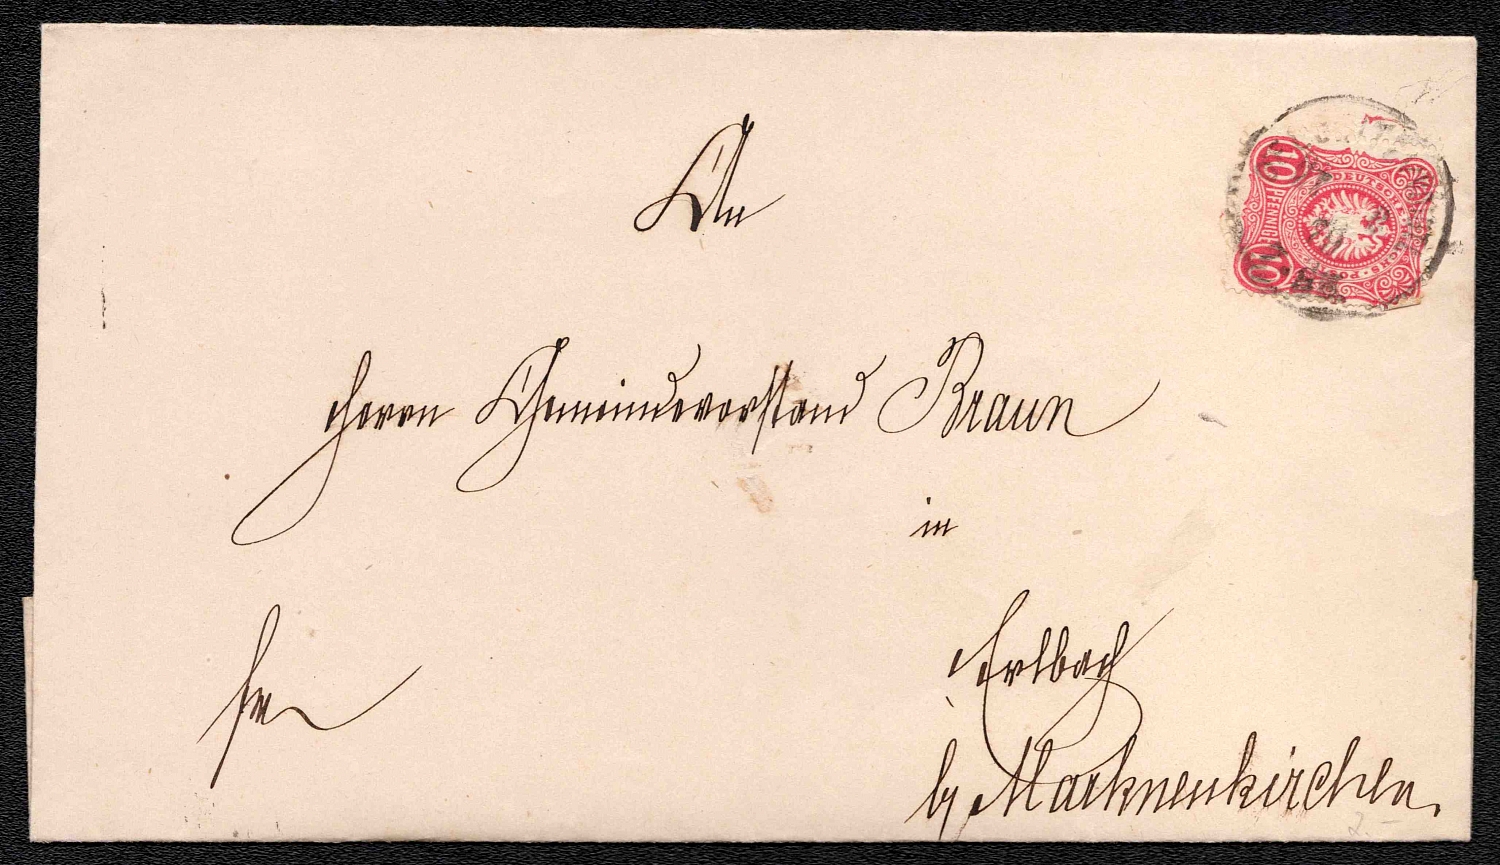 An
Herrn Gemeindevorstand Braun
in
Erlbach
b/ Markneukirchen.
fr
10 PFENNIG 10
DEUTSCHE REICHS-POST